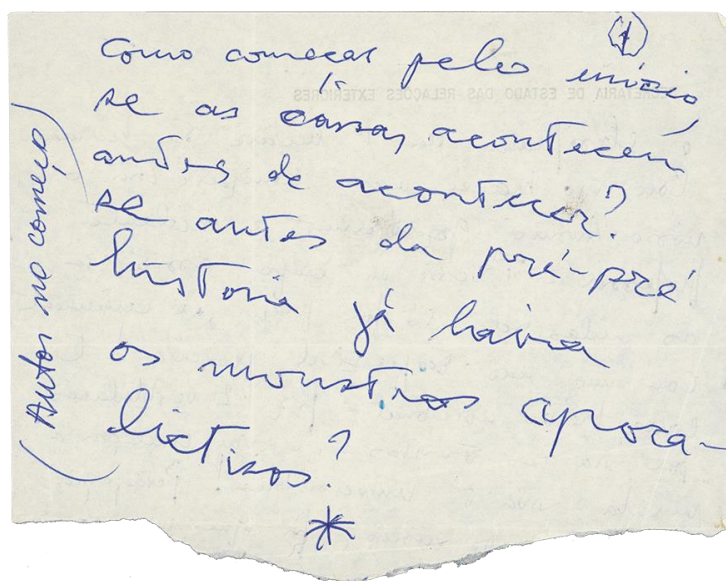 1
Como começar pelo início,
se as coisas acontecem
antes de acontecer?
se antes da pré-pré
história já havia
os monstros apoca-
lícticos?
*
(Autor no começo)
SECRETARIA DE ESTADO DAS RELAÇÕES EXTERIORES